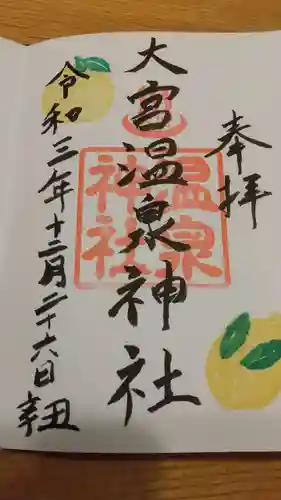 奉拝
大宮温泉神社
温泉
神社
令和三年十二月二十六日 辛丑